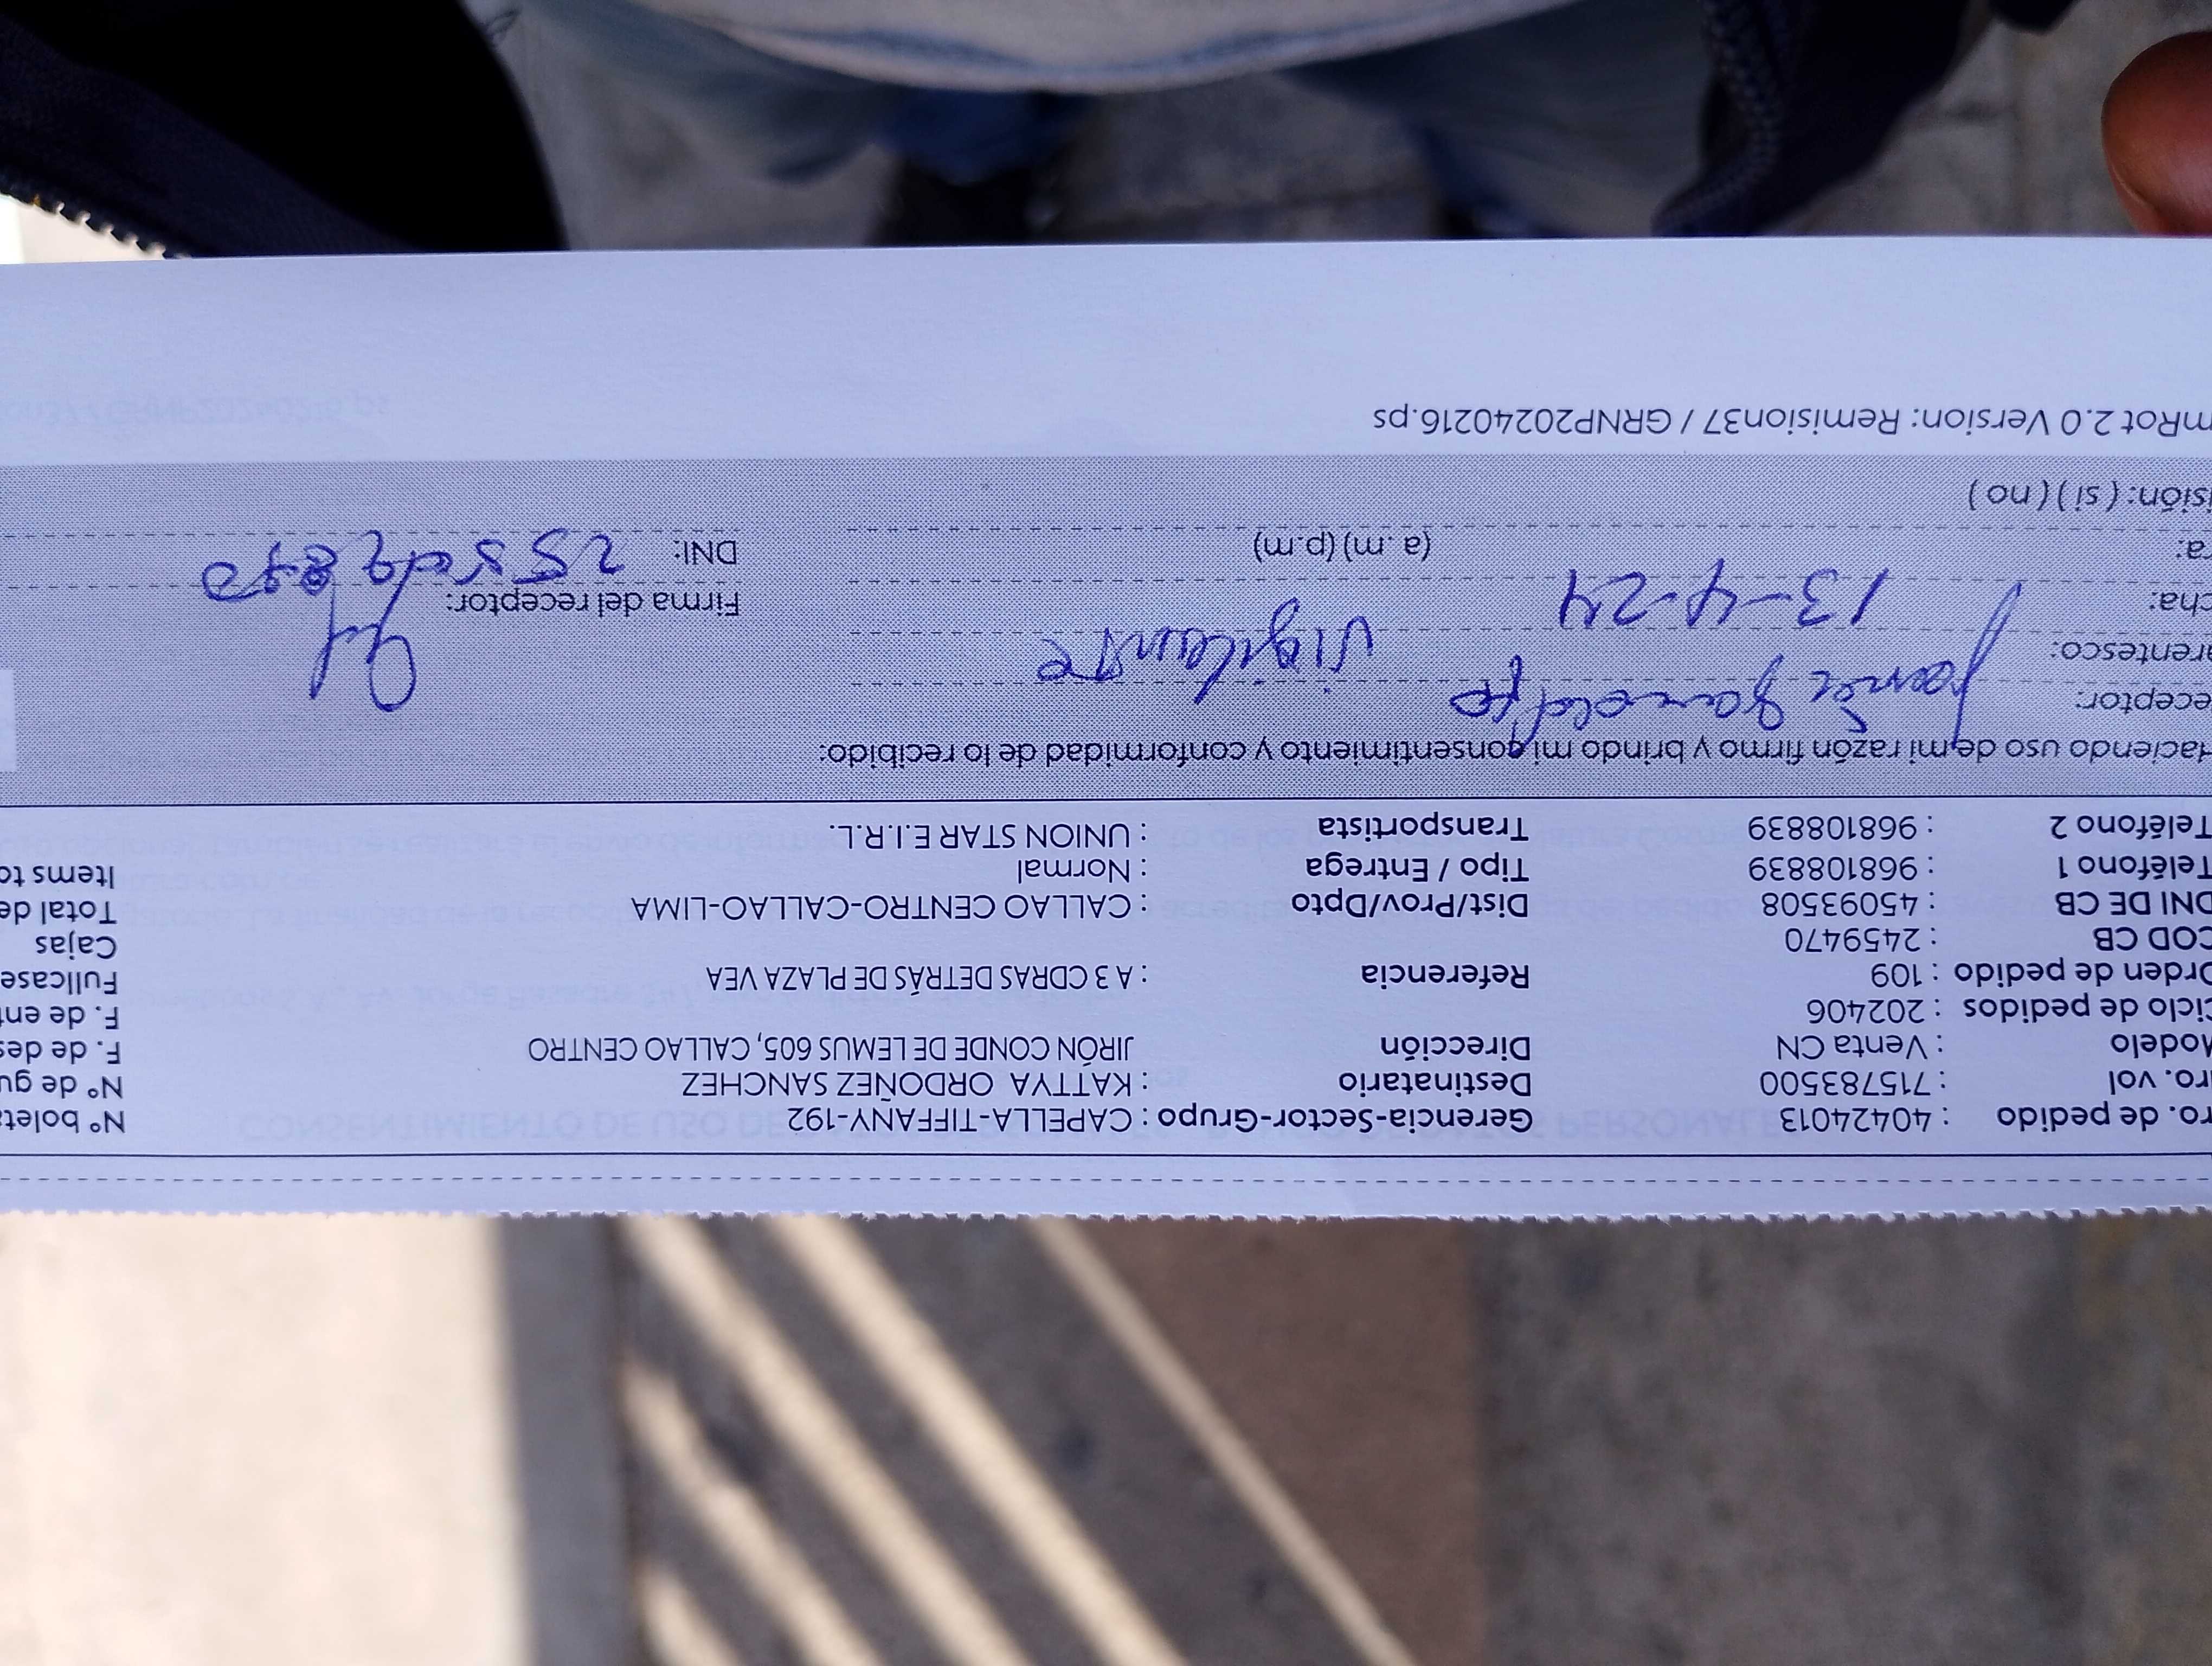 ro. de pedido : 404424013 Gerencia-Sector-Grupo : CAPELLA-TIFFANY-192 N° boleta
ro. vol : 715783500 Destinatario : KATTYA ORDOÑEZ SANCHEZ N° de gu
Modelo : Venta CN Dirección JIRÓN CONDE DE LEMUS 605, CALLAO CENTRO F. de des
Ciclo de pedidos : 202406 F. de en
Orden de pedido : 109 Referencia : A 3 CDRAS DETRÁS DE PLAZA VEA Fullcase
COD CB : 2459470 Cajas
DNI DE CB : 45093508 Dist/Prov/Dpto : CALLAO CENTRO-CALLAO-LIMA Total de
Teléfono 1 : 968108839 Tipo / Entrega : Normal Items to
Teléfono 2 : 968108839 Transportista : UNION STAR E.I.R.L.
Haciendo uso de mi razón firmo y brindo mi consentimiento y conformidad de lo recibido:
eceptor:
arentesco: Vigilante
cha: 13-4-24 Firma del receptor:
ra: (a .m) (p.m) DNI:
isión: ( si ) ( no )
mRot 2.0 Version: Remision37 / GRNP20240216.ps